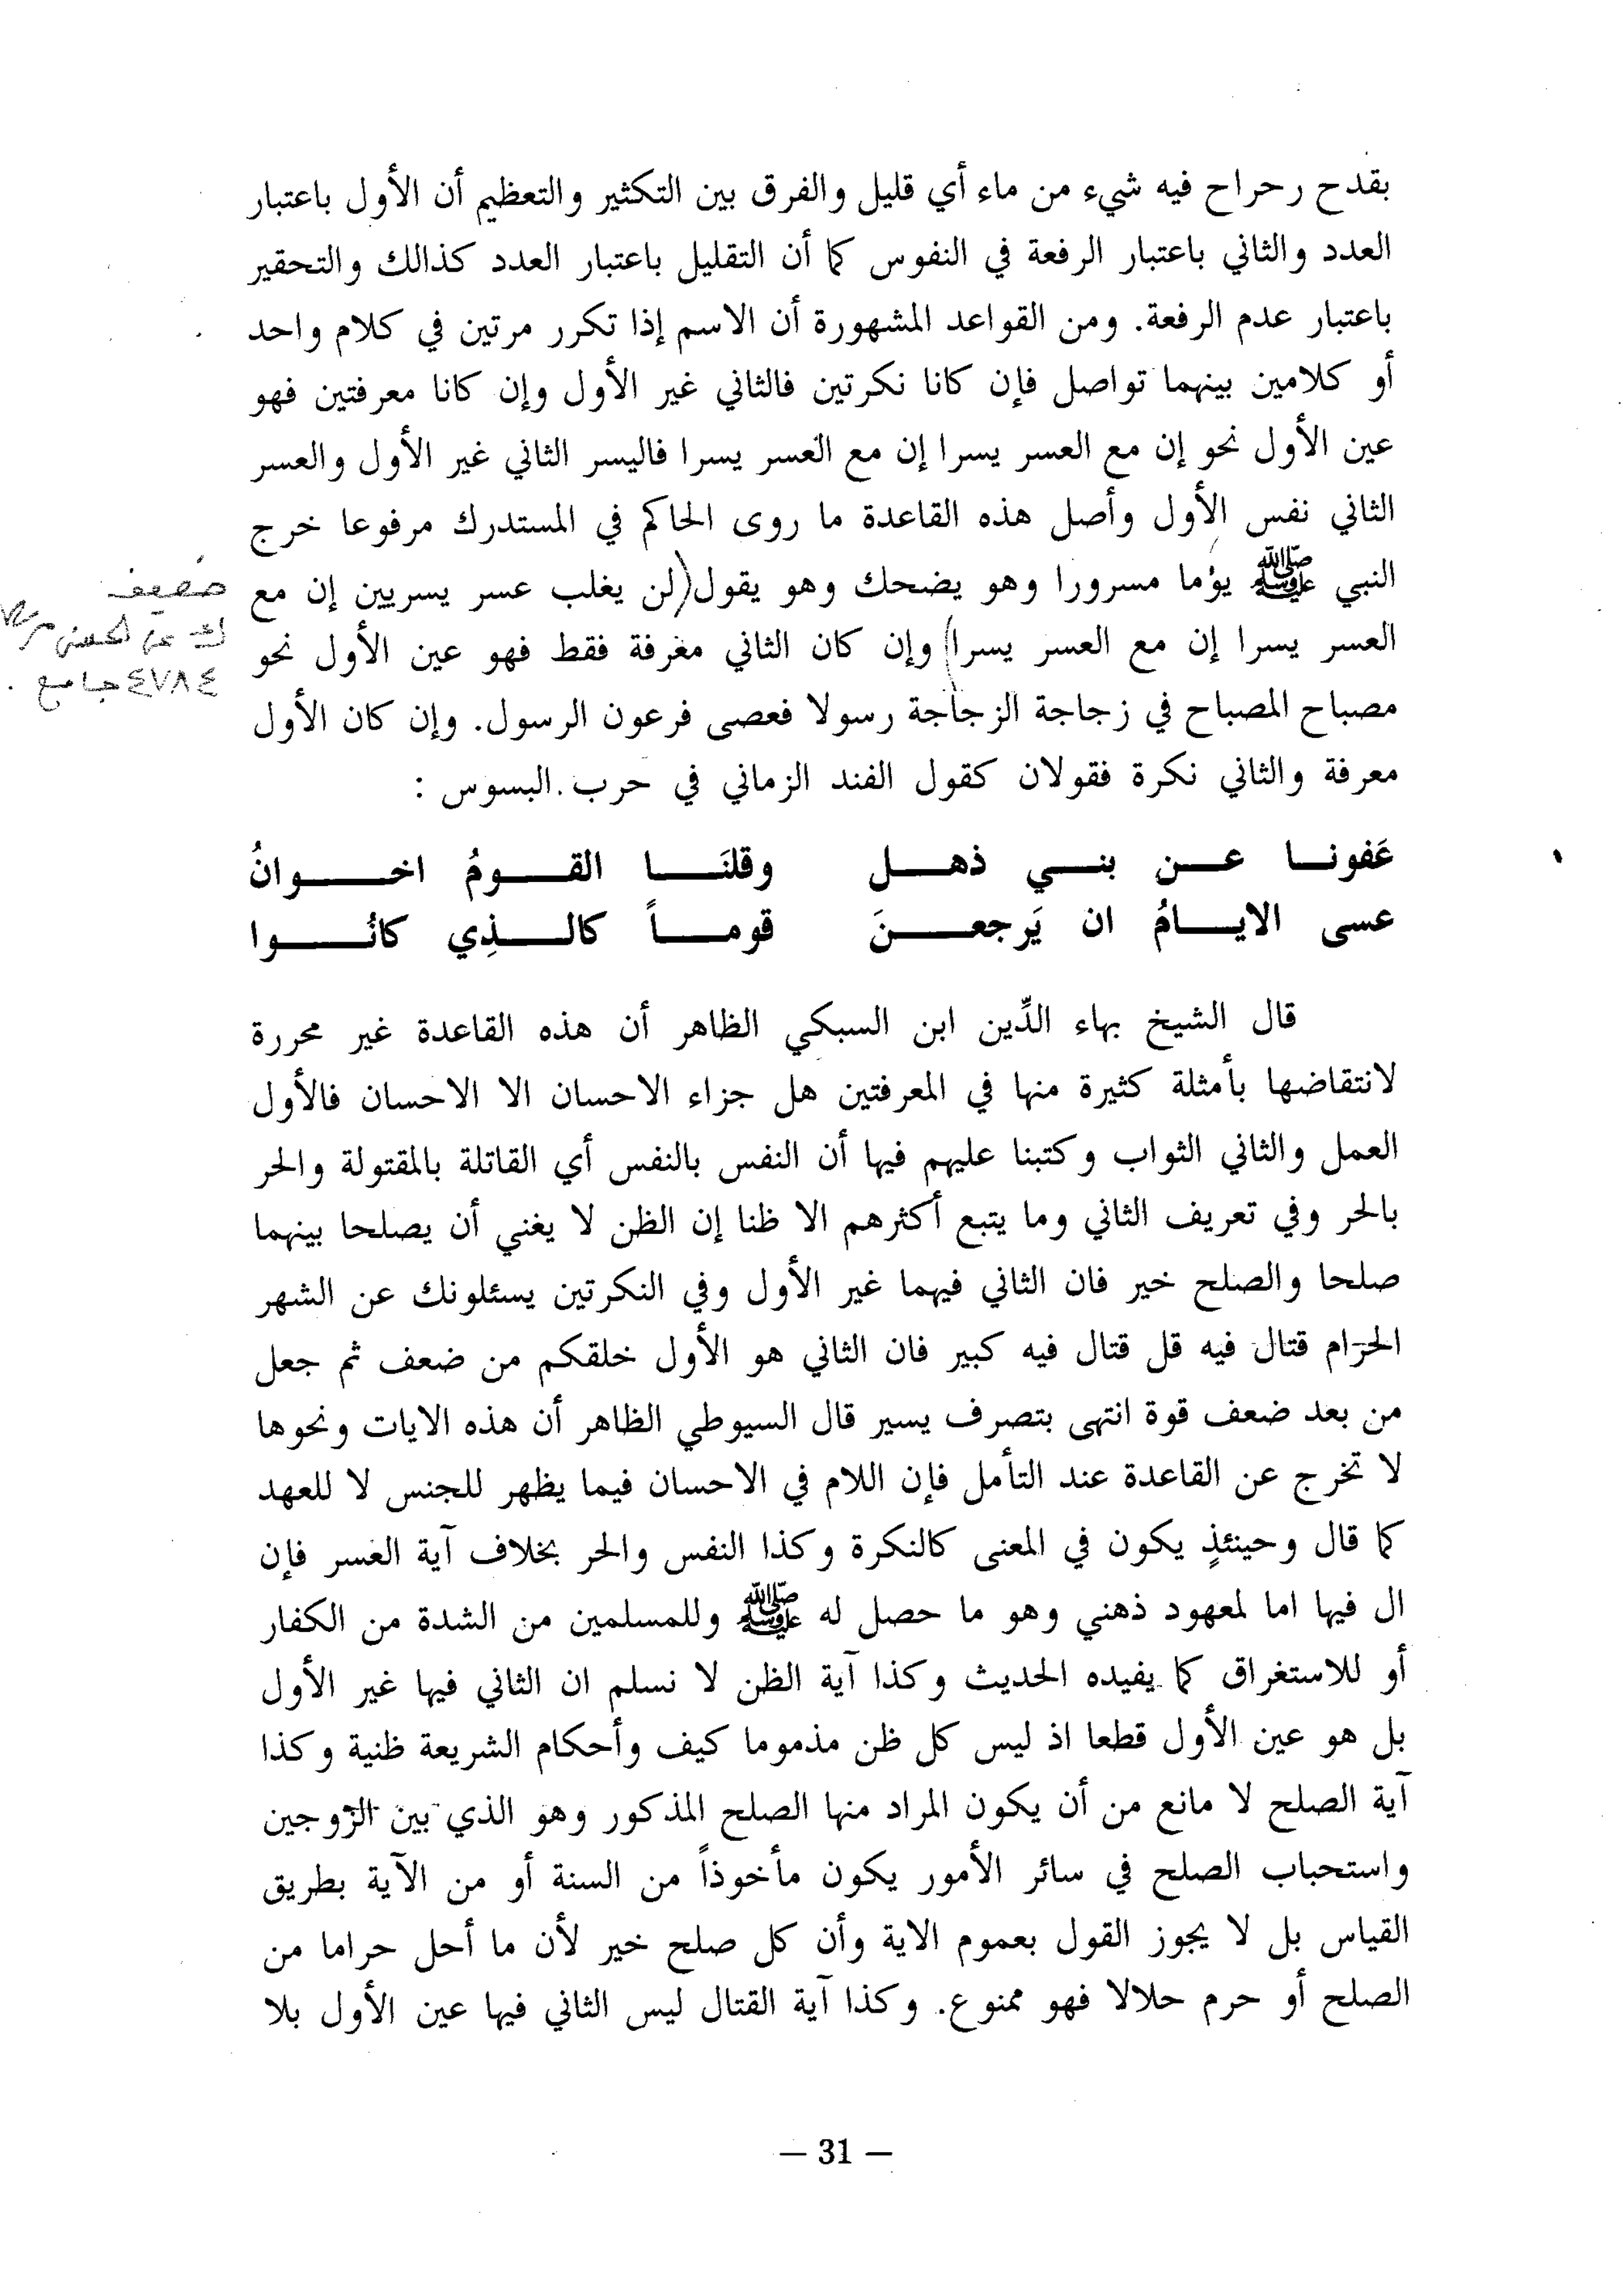 بقدح رحراح فيه شيء من ماء أي قليل والفرق بين التكثير والتعظيم أن الأول باعتبار
العدد والثاني باعتبار الرفعة في النفوس كما أن التقليل باعتبار العدد كذالك والتحقير
باعتبار عدم الرفعة. ومن القواعد المشهورة أن الاسم إذا تكرر مرتين في كلام واحد
أو كلامين بينهما تواصل فإن كانا نكرتين فالثاني غير الأول وإن كانا معرفتين فهو
عين الأول نحو إن مع العسر يسرا إن مع العسر يسرا فاليسر الثاني غير الأول والعسر
الثاني نفس الأول وأصل هذه القاعدة ما روى الحاكم في المستدرك مرفوعا خرج
النبي ﷺ يوما مسرورا وهو يضحك وهو يقول (لن يغلب عسر يسريين إن مع
العسر يسرا إن مع العسر يسرا) وإن كان الثاني معرفة فقط فهو عين الأول نحو
مصباح المصباح في زجاجة الزجاجة رسولا فعصى فرعون الرسول. وإن كان الأول
معرفة والثاني نكرة فقولان كقول الفند الزماني في حرب البسوس :
ضعيف
ك عن الحسن مرسلا
٤٧٨٤ جامع .
عَفونا عن بني ذهل وقلنَا القومُ اخوانُ
عسى الايامُ ان يَرجعنَ قوماً كالذِي كانُوا
قال الشيخ بهاء الدِّين ابن السبكي الظاهر أن هذه القاعدة غير محررة
لانتقاضها بأمثلة كثيرة منها في المعرفتين هل جزاء الاحسان الا الاحسان فالأول
العمل والثاني الثواب وكتبنا عليهم فيها أن النفس بالنفس أي القاتلة بالمقتولة والحر
بالحر وفي تعريف الثاني وما يتبع أكثرهم الا ظنا إن الظن لا يغني أن يصلحا بينهما
صلحا والصلح خير فان الثاني فيهما غير الأول وفي النكرتين يسئلونك عن الشهر
الحرام قتال فيه قل قتال فيه كبير فان الثاني هو الأول خلقكم من ضعف ثم جعل
من بعد ضعف قوة انتهى بتصرف يسير قال السيوطي الظاهر أن هذه الايات ونحوها
لا تخرج عن القاعدة عند التأمل فإن اللام في الاحسان فيما يظهر للجنس لا للعهد
كما قال وحينئذٍ يكون في المعنى كالنكرة وكذا النفس والحر بخلاف آية العسر فإن
ال فيها اما لمعهود ذهني وهو ما حصل له ﷺ وللمسلمين من الشدة من الكفار
أو للاستغراق كما يفيده الحديث وكذا آية الظن لا نسلم ان الثاني فيها غير الأول
بل هو عين الأول قطعا اذ ليس كل ظن مذموما كيف وأحكام الشريعة ظنية وكذا
آية الصلح لا مانع من أن يكون المراد منها الصلح المذكور وهو الذي بين الزوجين
واستحباب الصلح في سائر الأمور يكون مأخوذاً من السنة أو من الآية بطريق
القياس بل لا يجوز القول بعموم الاية وأن كل صلح خير لأن ما أحل حراما من
الصلح أو حرم حلالا فهو ممنوع. وكذا آية القتال ليس الثاني فيها عين الأول بلا
— 31 —